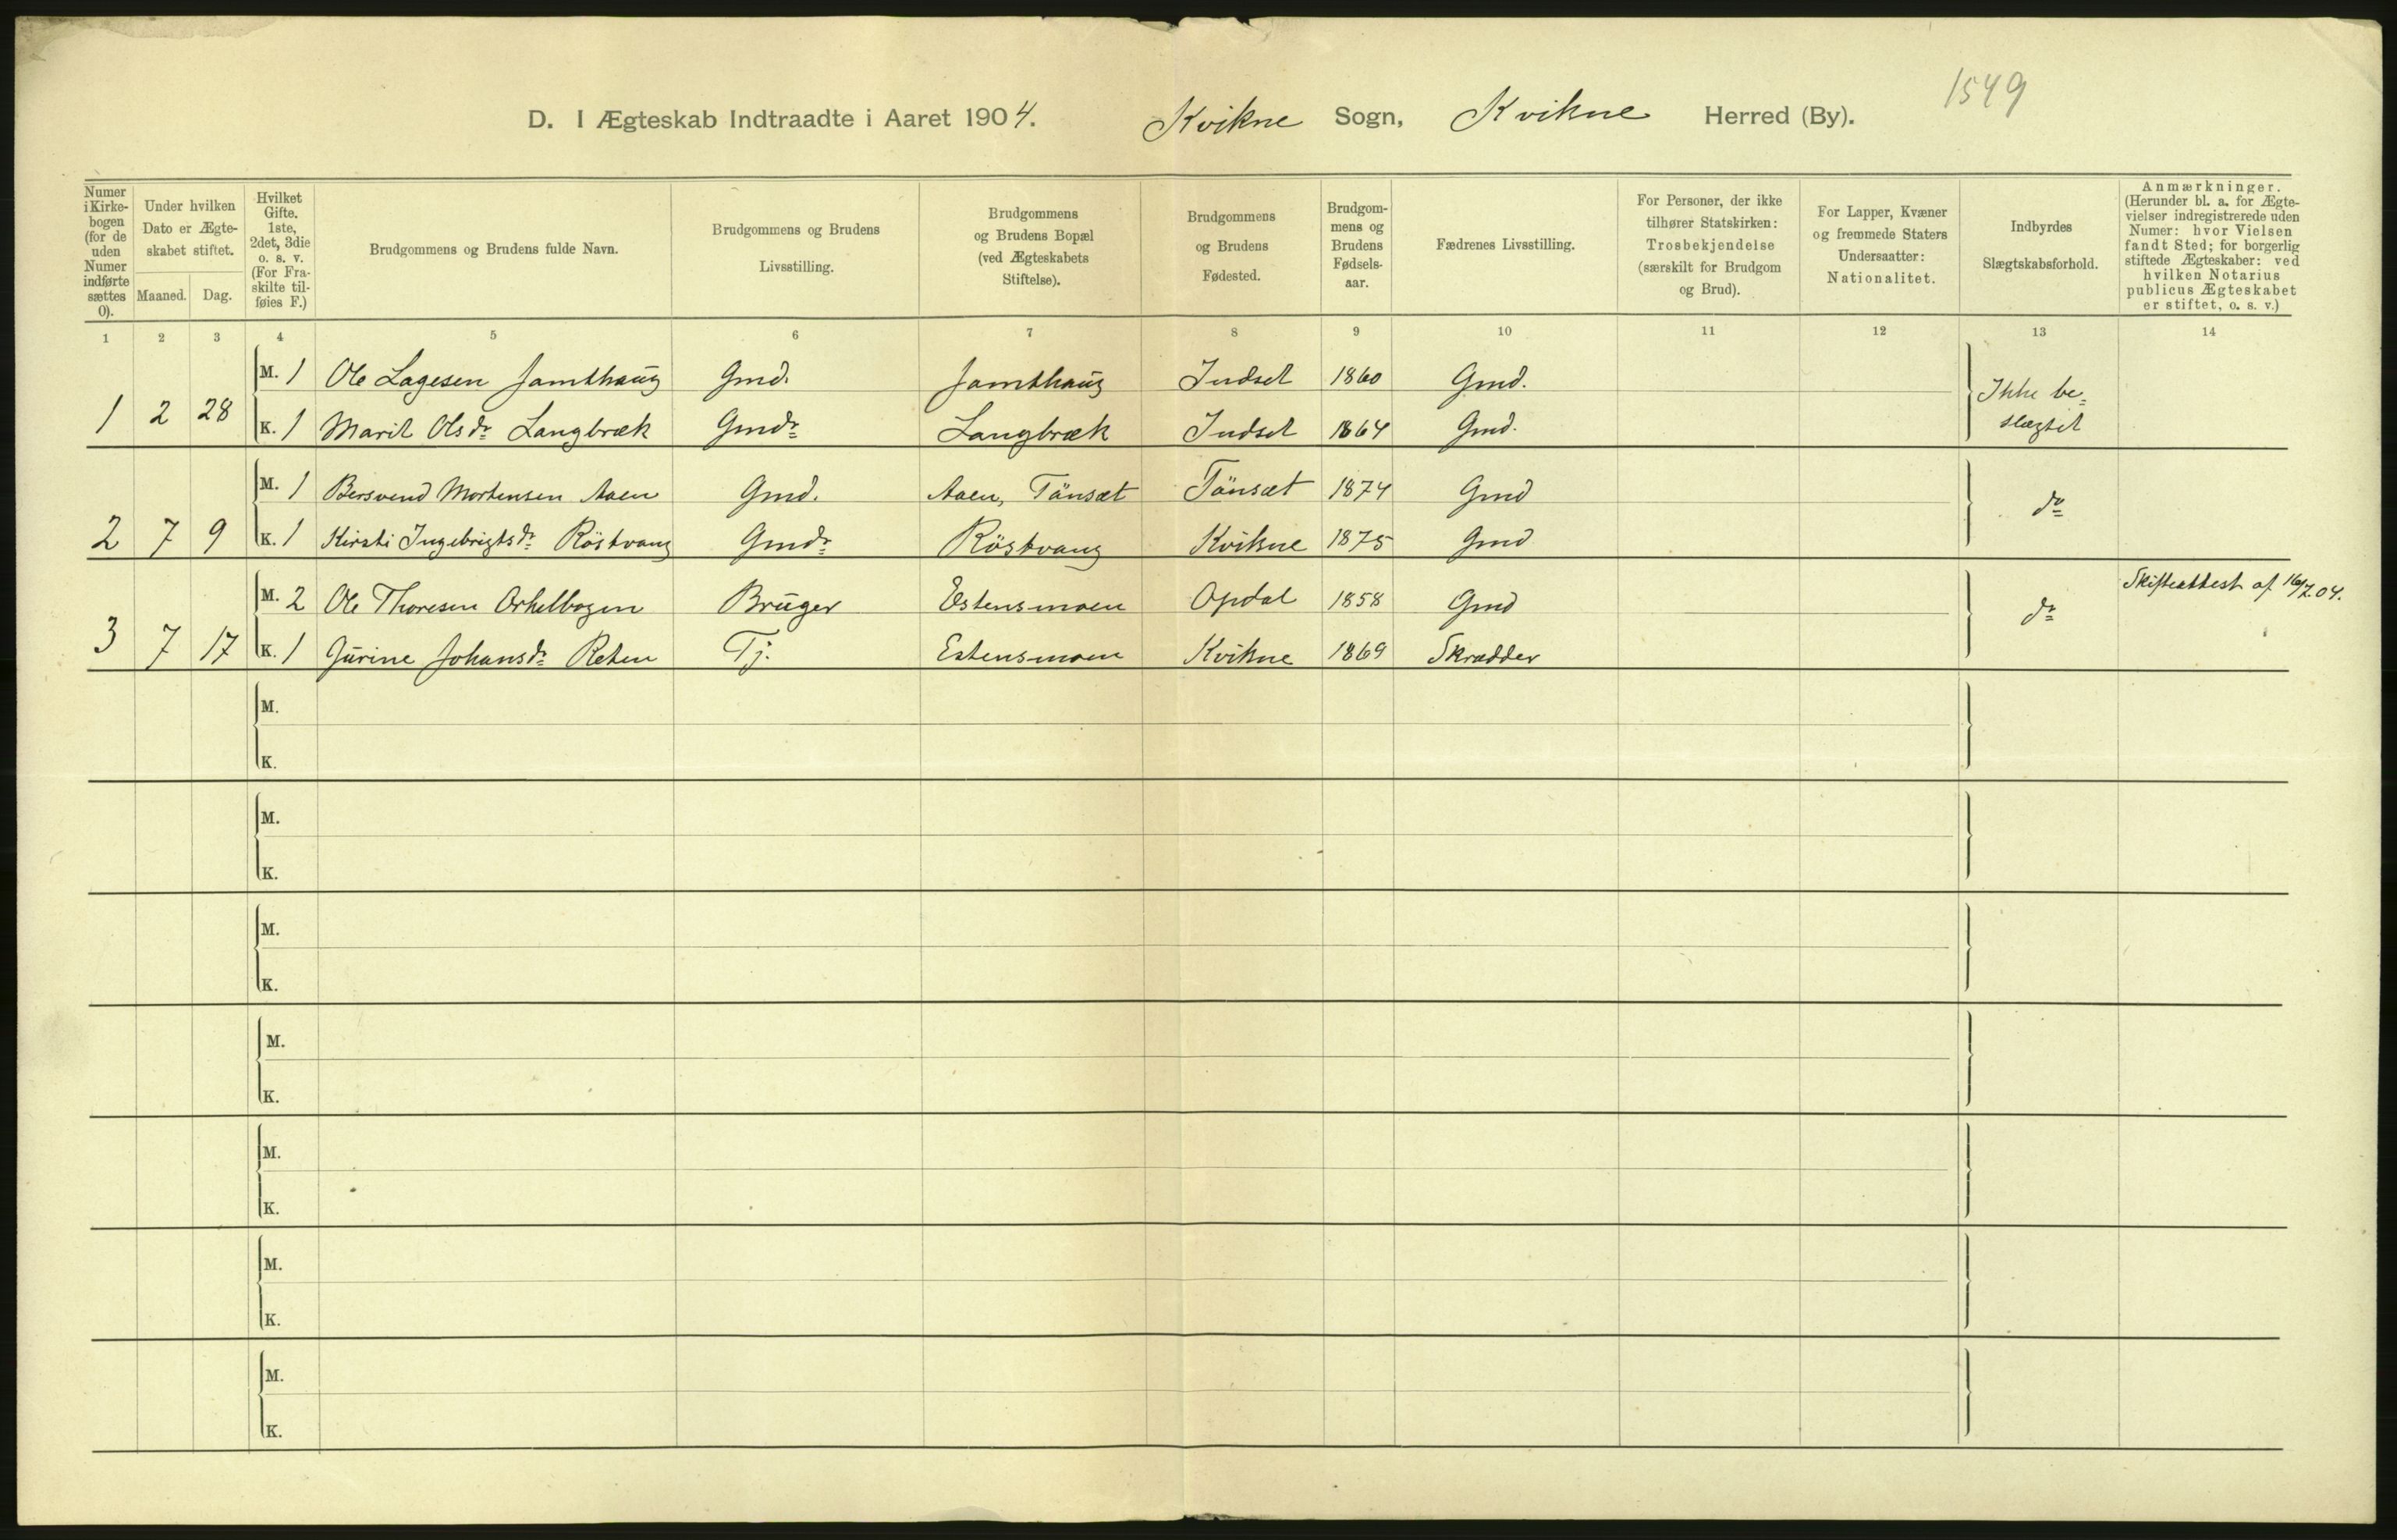 1549
D. I Ægteskab Indtraadte i Aaret 1904. Kvikne Sogn, Kvikne Herred (By).
Numer
i Kirke-
bogen
(for de
uden
Numer
indførte
sættes
0).
Under hvilken
Dato er Ægte-
skabet stiftet.
Maaned. Dag.
Hvilket
Gifte.
1ste,
2det, 3die
o. s. v.
(For Fra-
skilte til-
føies F.)
Brudgommens og Brudens fulde Navn.
Brudgommens og Brudens
Livsstilling.
Brudgommens
og Brudens Bopæl
(ved Ægteskabets
Stiftelse).
Brudgommens
og Brudens
Fødested.
Brudgom-
mens og
Brudens
Fødsels-
aar.
Fædrenes Livsstilling.
For Personer, der ikke
tilhører Statskirken:
Trosbekjendelse
(særskilt for Brudgom
og Brud).
For Lapper, Kvæner
og fremmede Staters
Undersaatter:
Nationalitet.
Indbyrdes
Slægtskabsforhold.
Anmærkninger.
(Herunder bl. a. for Ægte-
vielser indregistrerede uden
Numer: hvor Vielsen
fandt Sted; for borgerlig
stiftede Ægteskaber: ved
hvilken Notarius
publicus Ægteskabet
er stiftet, o. s. v.)
1 2 3 4 5 6 7 8 9 10 11 12 13 14
M. 1 Ole Lagesen Jamthaug Gmd. Jamthaug Indset 1860 Gmd.
1 2 28 Ikke be-
slægtet
K. 1 Marit Olsdr Langbræk Gmdr Langbræk Indset 1864 Gmd.
M. 1 Bersvend Mortensen Aaen Gmd. Aaen, Tönsæt Tönsæt 1874 Gmd
2 7 9 dr
K. 1 Kirsti Ingebrigtsdr Röstvang Gmdr Röstvang Kvikne 1875 Gmd
M. 2 Ole Thoresen Orkelbogen Bruger Estensmoen Opdal 1858 Gmd Skifteattest af 16/7.04.
3 7 17 dr
K. 1 Gurine Johansdr Reten Tj. Estensmoen Kvikne 1869 Skrædder
M.
K.
M.
K.
M.
K.
M.
K.
M.
K.
M.
K.
M.
K.